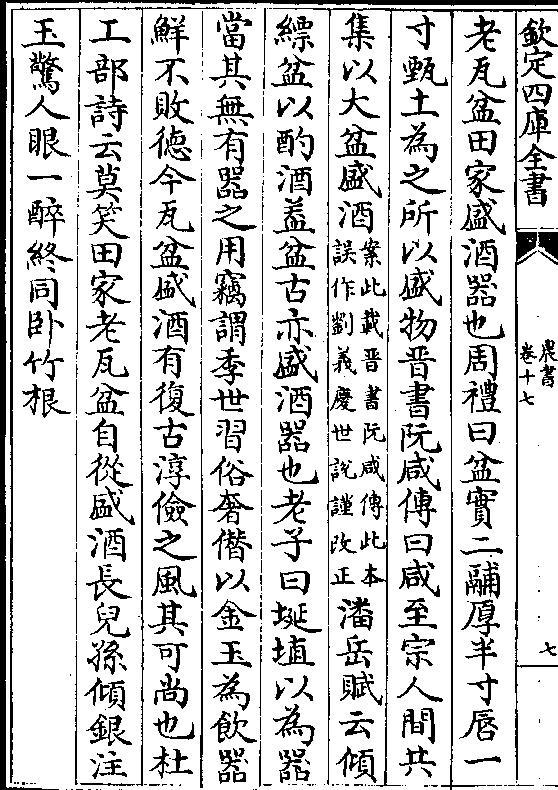 欽定四庫全書
農書
卷十七
七
老瓦盆田家盛酒器也周禮曰盆實二鬴厚半寸唇一
寸甄土為之所以盛物晉書阮咸傳曰咸至宗人間共
集以大盆盛酒案此載晉書阮咸傳此本誤作劉義慶世説謹改正潘岳賦云傾
縹盆以酌酒葢盆古亦盛酒器也老子曰埏埴以為器
當其無有器之用竊謂季世習俗奢僭以金玉為飲器
鮮不敗德今瓦盆盛酒有復古淳儉之風其可尚也杜
工部詩云莫笑田家老瓦盆自從盛酒長兒孫傾銀注
玉驚人眼一醉終同卧竹根